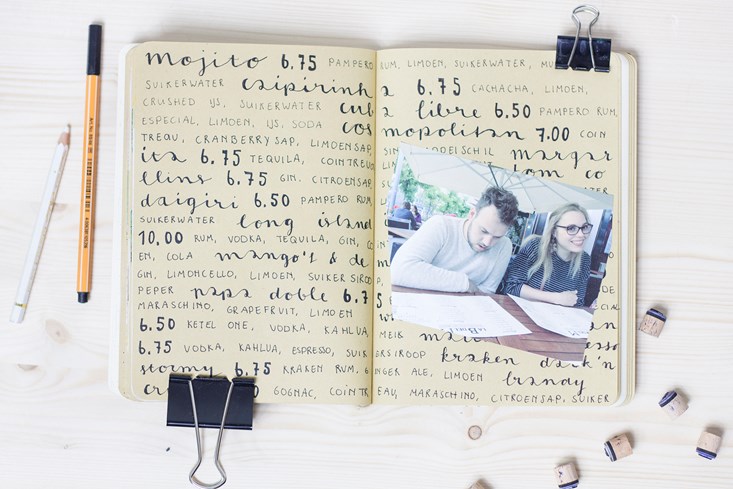 mojito 6.75 PAMPERO RUM, LIMOEN, SUIKERWATER, MU
SUIKERWATER caipirinha 6.75 CACHACHA, LIMOEN,
CRUSHED IJS, SUIKERWATER cuba libre 6.50 PAMPERO RUM,
ESPECIAL, LIMOEN, IJS, SODA cosmopolitan 7.00 COIN
TREAU, CRANBERRYSAP, LIMOENSAP, SIN margar
ita 6.75 TEQUILA, COINTREAU om co
llins 6.75 GIN, CITROENSAP,
daigiri 6.50 PAMPERO RUM
SUIKERWATER long island
10.00 RUM, VODKA, TEQUILA, GIN, CO
EN, COLA mango's & de
GIN, LIMONCELLO, LIMOEN, SUIKERSIROO
PEPER papa doble 6.75
MARASCHINO, GRAPEFRUIT, LIMOEN
6.50 KETEL ONE, VODKA, KAHLUA,
6.75 VODKA, KAHLUA, ESPRESSO, SUIKERSIROOP kraken dark'n
stormy 6.75 KRAKEN RUM, GINGER ALE, LIMOEN brandy
COGNAC, COINTREAU, MARASCHINO, CITROENSAP, SUIKER